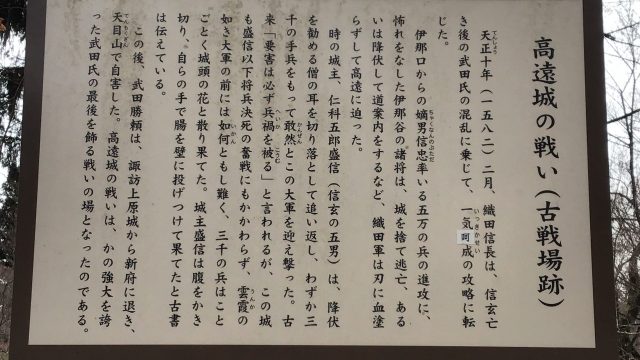 高遠城の戦い(古戦場跡)
天正十年(一五八二)二月、織田信長は、信玄亡
き後の武田氏の混乱に乗じて、一気呵成の攻略に転
じた。
伊那口からの嫡男信忠率いる五万の兵の進攻に、
怖れをなした伊那谷の諸将は、城を捨て逃亡、ある
いは降伏して道案内をするなど、織田軍は刃に血塗
らずして高遠に迫った。
時の城主、仁科五郎盛信(信玄の五男)は、降伏
を勧める僧の耳を切り落として追い返し、わずか三
千の手兵をもって敢然とこの大軍を迎え撃った。古
来「要害は必ず兵禍を被る」と言われるが、この城
も盛信以下将兵決死の奮戦にもかかわらず、雲霞の
如き大軍の前には如何ともし難く、三千の兵はこと
ごとく城頭の花と散り果てた。城主盛信は腹をかき
切り、自らの手で腸を壁に投げつけて果てたと古書
は伝えている。
この後、武田勝頼は、諏訪上原城から新府に退き、
天目山で自害した。高遠城の戦いは、かの強大を誇
った武田氏の最後を飾る戦いの場となったのである。